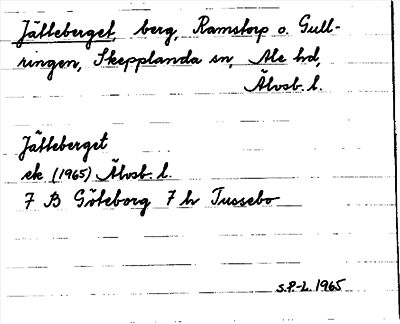 Jätteberget, berg, Ramstorp o. Gull-
ringen, Skepplanda sn, Ale hd,
Älvsb. l.
Jätteberget
ek (1965) Älvsb. l.
7 B Göteborg 7 h Tussebo
S.P.-L. 1965